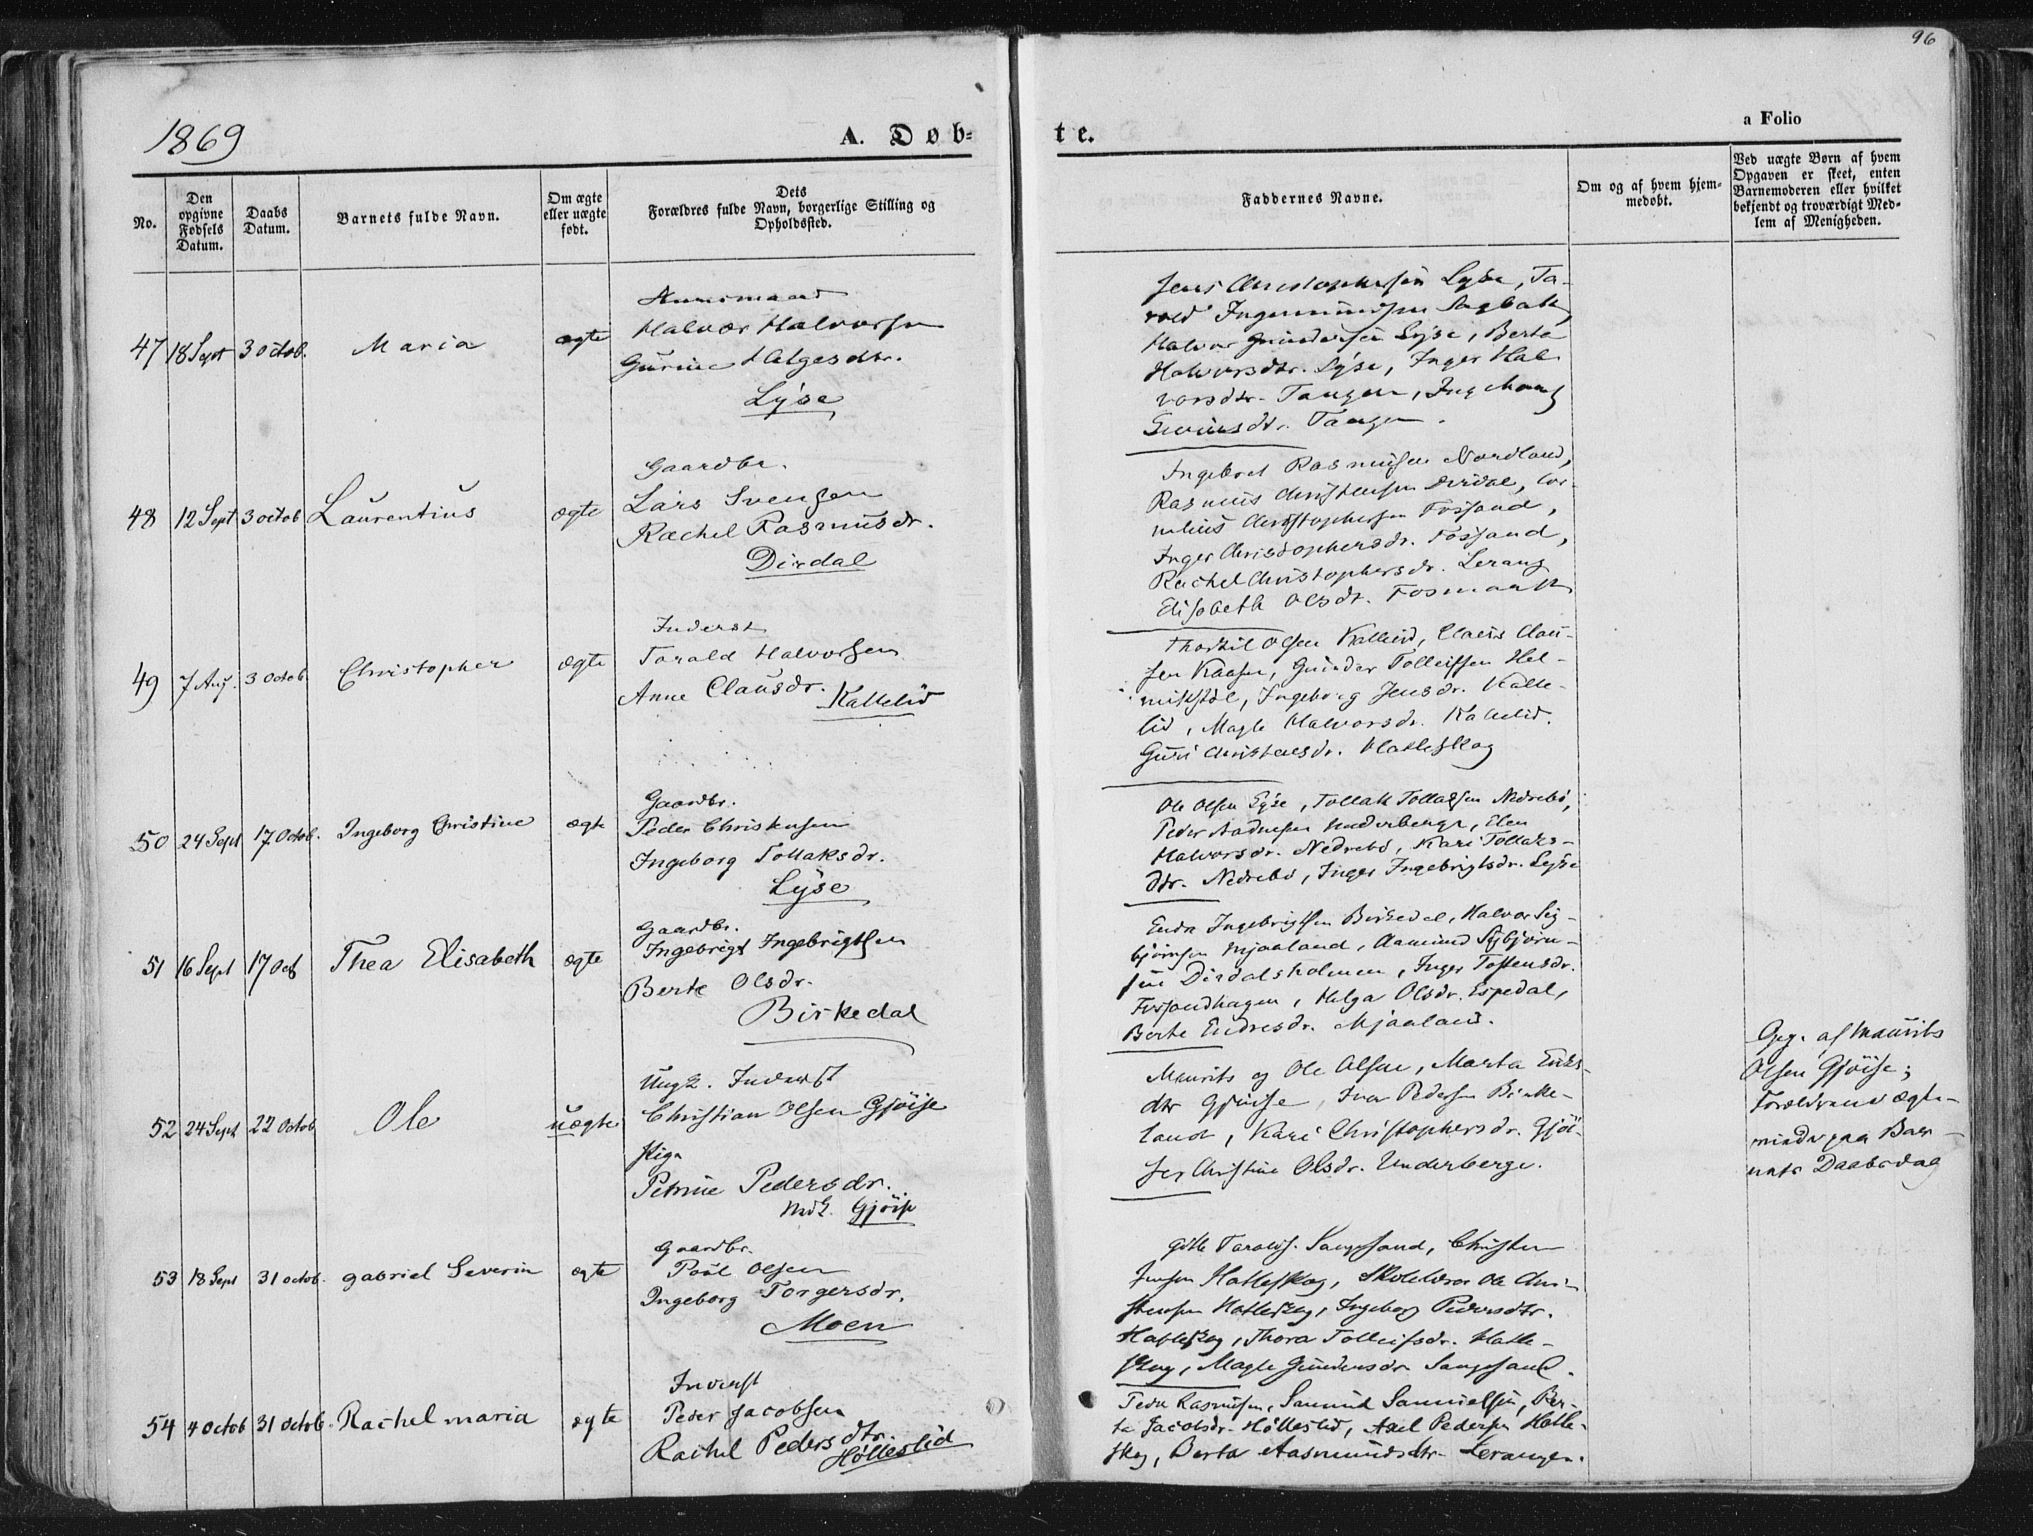 96
1869
A. Døb-
te.
a Folio
No.
Den
opgivne
Fødsels
Datum.
Daabs
Datum.
Barnets fulde Navn.
Om ægte
eller uægte
født.
Dets
Forældres fulde Navn, borgerlige Stilling og
Opholdssted.
Faddernes Navne.
Om og af hvem hjem-
medøbt.
Ved uægte Børn af hvem
Opgaven er skeet, enten
Barnemoderen eller hvilket
bekjendt og troværdigt Med-
lem af Menigheden.
47 18 Sept 3 Octob. Maria ægte
Huusmand
Halvor Halvorsen
Gurine Helgesdtr.
Lyse
Jens Christophersen Lyse, Ta-
rald Ingemundsen
Halvor Gundersen Lyse, Berta
Halvorsdtr. Lyse, Inger Hal-
vorsdtr. Tangen, Ingeborg
Tangen.
48 12 Sept 3 octob Laurentius ægte
Gaardbr.
Lars Svensen
Rachel Rasmusdr.
Dirdal
Ingebret Rasmusen Nordland,
Rasmus Christensen Dirdal, Cor-
nelius Christophersen Fossand,
Inger Christophersdr. Fossand,
Rachel Christophersdr. Lerang
Elisabeth Olsdr. Fosmark
49 7 Aug. 3 Octob. Christopher ægte
Inderst
Tarald Halvorsen
Anne Clausdr. Kallelid
Thorkil Olsen Kallelid, Claus Clau-
sen Kaasen, Gunder Tolleifsen Hel-
mikstøl, Ingeborg Jensdr. Kalle-
lid, Magle Halvorsdr. Kallelid.
Guri Christensdr. Hatleskog
50 24 Sept 17 Octob. Ingeborg Christine ægte
Gaardbr.
Peder Christensen
Ingeborg Tollaksdr.
Lyse
Ole Olsen Lyse, Tollak Tollaksen Nedrebø,
Peder Aadnesen Underberge, Elen
Halvorsdr. Nedrebø, Kari Tollaks-
dtr. Nedrebø, Inger Ingebrigtsdr. Lyse
51 16 Sept 17 Oct Thea Elisabeth ægte
Gaardbr.
Ingebrigt Ingebrigtsen
Berte Olsdr.
Birkedal
Endre Ingebrigtsen Birkedal, Halvor Sig-
bjørnsen Mjaaland, Aamund Sigbjørn-
sen Dirdalsholmen, Inger Tostensdr.
Fossandhagen, Helga Olsdr. Espedal,
Berte Endresdr. Mjaaland.
52 24 Sept 22 Octob Ole uægte
Ungk. Inderst
Christian Olsen Gjøise
Pige
Petrine Pedersdr.
Gjøise
Maurits og Ole Olsen, Marta Eriks-
dtr Gjøise, Iver Pedersen Birke-
land, Kari Christophersdr. Gjøi-
se, Christine Olsdr. Underberge.
Opg. af Maurits
Olsen Gjøise;
Forældrene ægte-
viede paa Bar-
nets Daabsdag
53 18 Sept 31 octob. gabriel Severin ægte
Gaardbr.
Poul Olsen
Ingeborg Torgersdr.
Moen
Gitle Taralds. Sangesand, Christen
Jensen Hatleskog, Skolelærer Ole Chri-
stensen Hatleskog, Ingeborg Pedersdtr.
Hatleskog, Thora Tolleifsdr. Hatle-
skog, Magle Gundersdr Sangesand.
54 4 Octob 31 Octob. Rachel maria ægte
Inderst
Peder Jacobsen
Rachel Pedersdtr.
Høllesliid
Peder Rasmusen, Samuel Samuelsen, Ber-
ta Jacobsdr. Høllesliid, Axel Pedersen Hatle-
skog, Berta Aasmundsdtr Lerangen.